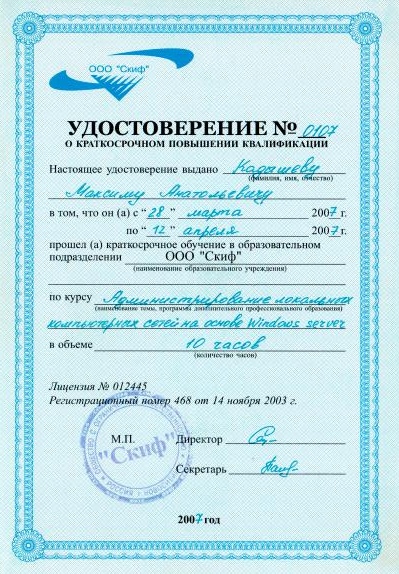 ООО "Скиф"
УДОСТОВЕРЕНИЕ № 0107
О КРАТКОСРОЧНОМ ПОВЫШЕНИИ КВАЛИФИКАЦИИ
Настоящее удостоверение выдано Кадашеву
(фамилия, имя, отчество)
Максиму Анатольевичу
в том, что он (а) с " 28 " марта 2007 г.
по " 12 " апреля 2007 г.
прошел (а) краткосрочное обучение в образовательном
подразделении ООО "Скиф"
(наименование образовательного учреждения)
по курсу Администрирование локальных
(наименование темы, программы дополнительного профессионального образования)
компьютерных сетей на основе Windows server
в объеме 10 часов
(количество часов)
Лицензия № 012445
Регистрационный номер 468 от 14 ноября 2003 г.
М.П. Директор
"Скиф"
Секретарь
2007 год